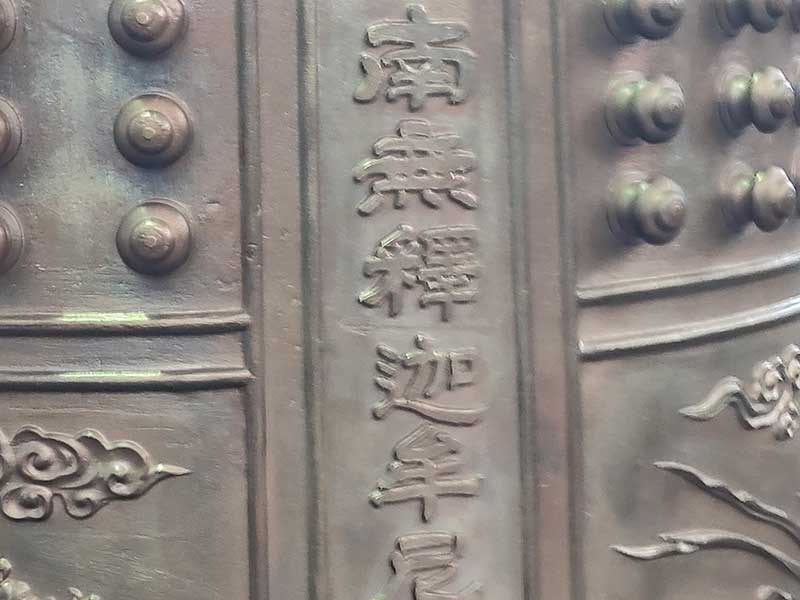 南無釋迦牟尼